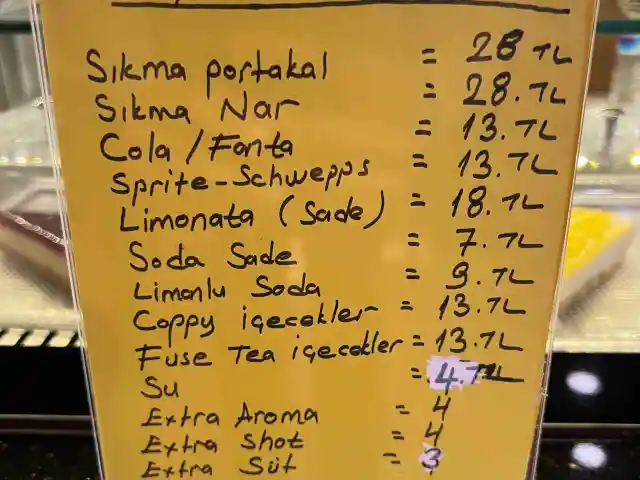 Sıkma portakal = 28 TL
Sıkma Nar = 28. TL
Cola / Fanta = 13. TL
Sprite-Schwepps = 13. TL
Limonata (Sade) = 18. TL
Soda Sade = 7. TL
Limonlu Soda = 9. TL
Cappy içecekler = 13. TL
Fuse Tea içecekler = 13. TL
Su = 4. TL
Extra Aroma = 4
Extra Shot = 4
Extra Süt = 3